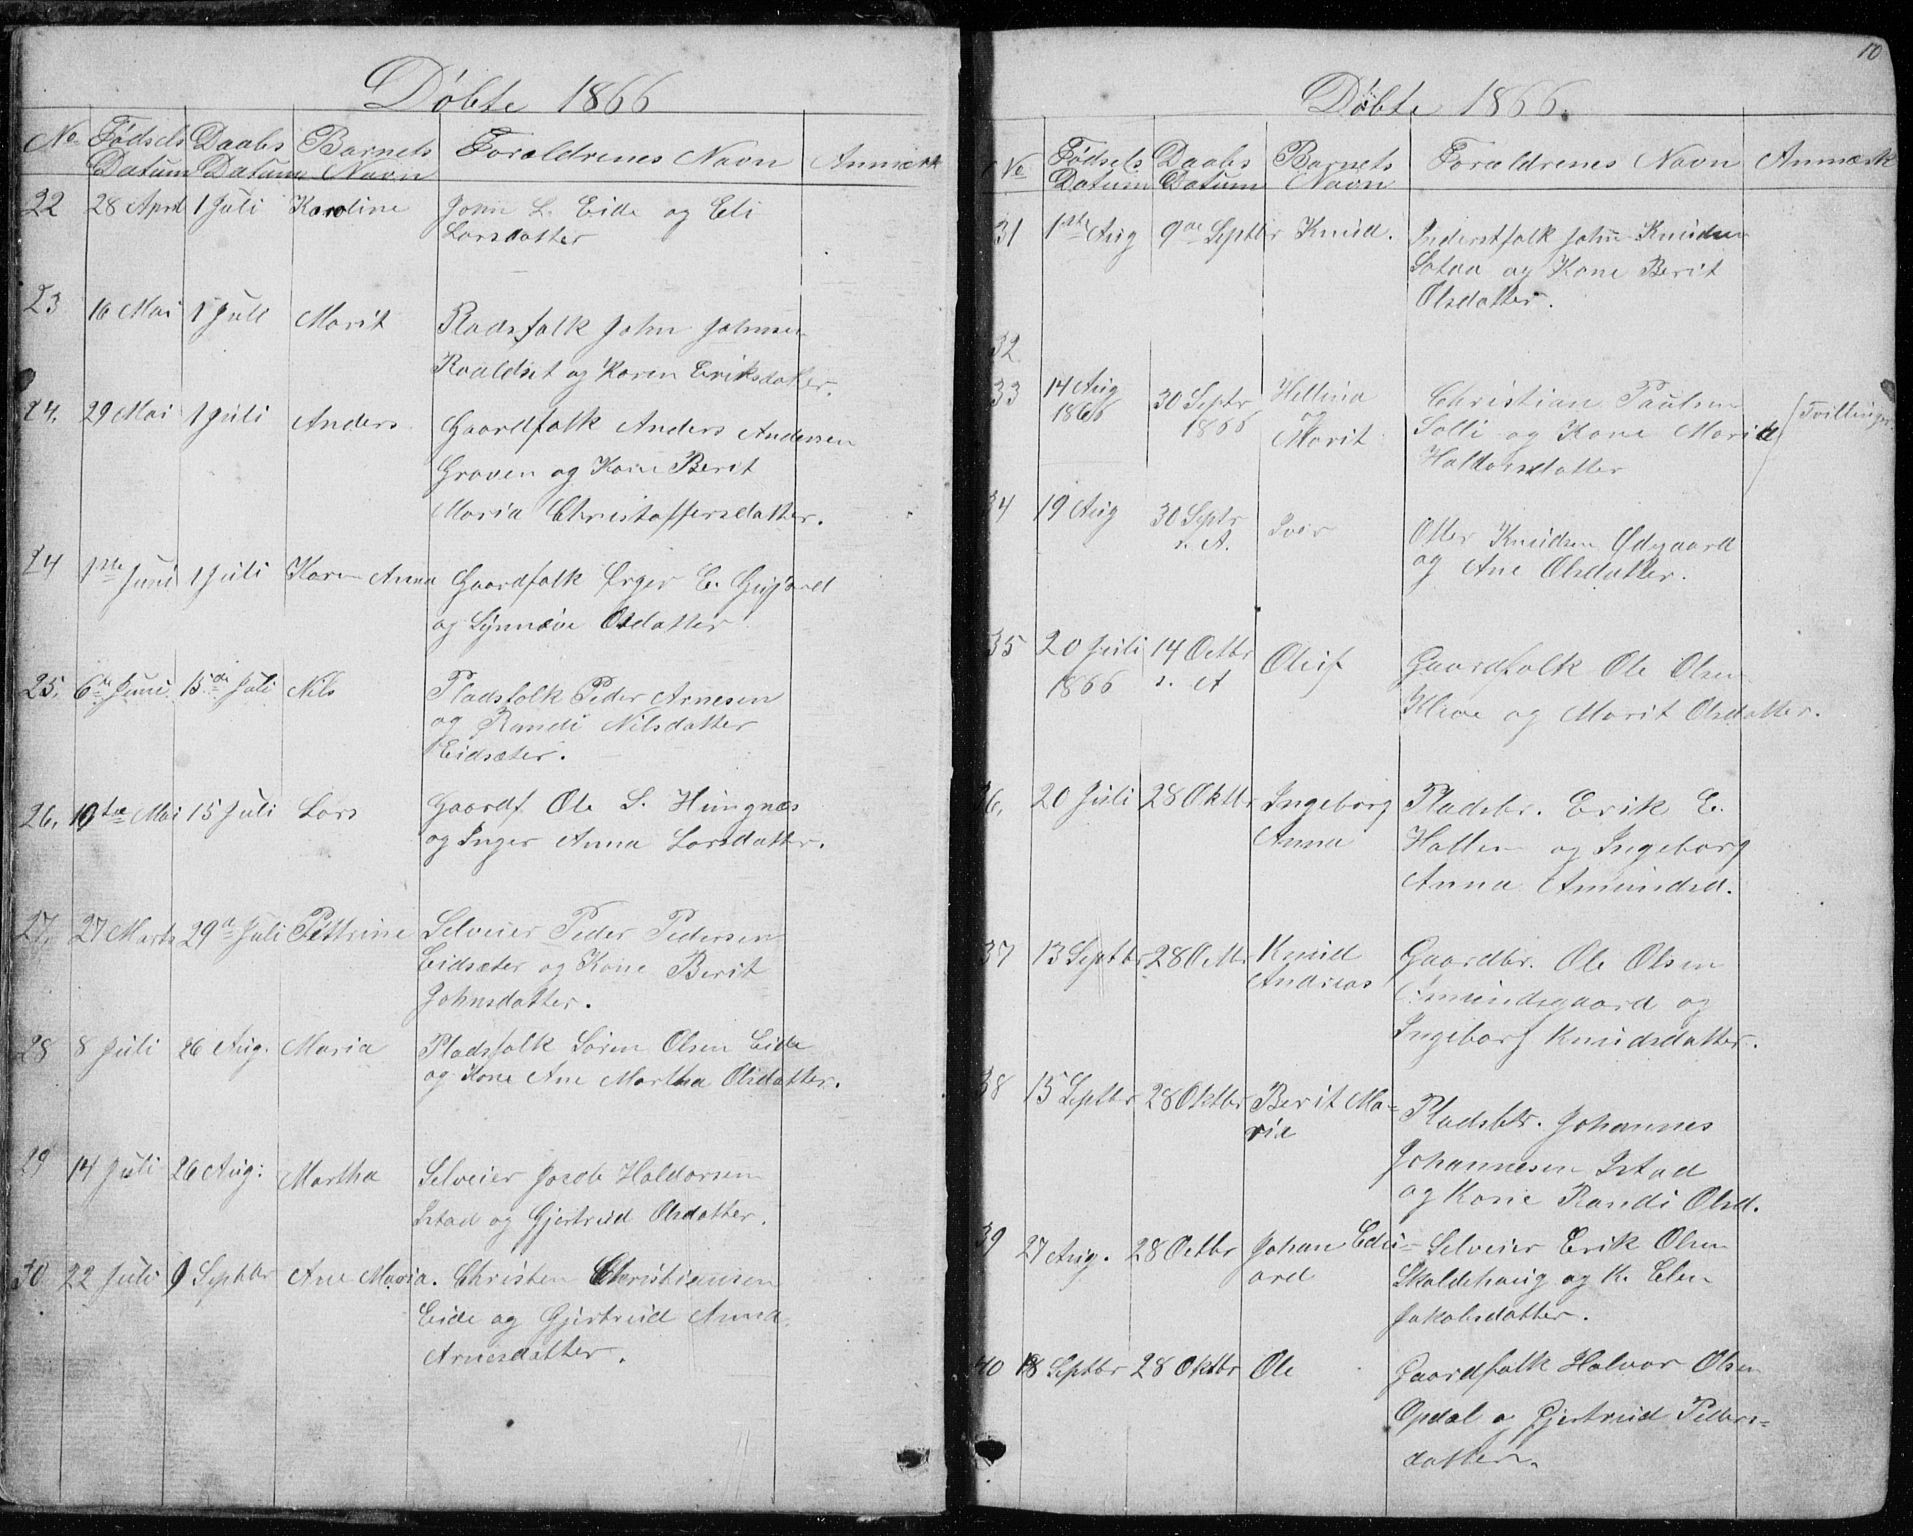 Døbte 1866
No Fødsels Datum Daabs Datum Barnets Navn Forældrenes Navn Anmærk
22 28 April 1 Juli Karoline John L. Eide og Eli
Larsdatter
23 16 Mai 1 Juli Marit Pladsfolk John Johnsen
Roaldset og Karen Eriksdatter.
24. 29 Mai 1 Juli Anders Gaardfolk Anders Andersen
Graven og Kone Berit
Maria Christoffersdatter.
24 1ste Juni 1 Juli Karen Anna Gaardfolk Ørger E. Gujord
og Synnøve Olsdatter
25. 6te Juni 15de Juli Nils Pladsfolk Peder Arnesen
og Randi Nilsdatter
Eidsæter.
26. 10de Mai 15 Juli Lars Gaardf Ole S. Hungnæs
og Inger Anna Larsdatter.
27. 27 Marts 29de Juli Pettrine Selveier Peder Pedersen
Eidsæter og Kone Berit
Johnsdatter.
28 8 Juli 26 Aug. Maria Pladsfolk Søren Olsen Eide
og Kone Ane Martha Olsdatter.
29 14 Juli 26 Aug: Martha Selveier Jacob Haldorsen
Istad og Gjertrud Olsdatter.
30 22 Juli 9 Septbr Ane Maria. Christen Christiansen
Eide og Gjertrud Anna
Arnesdatter.
10
Døbte 1866.
No Fødsels Datum Daabs Datum Barnets Navn Forældrenes Navn Anmærk
31 1ste Aug 9de Septbr Knud. Inderstfolk John Knudsen
Sotaa og Kone Berit
Olsdatter.
32
33 14 Aug 1866 30 Septr 1866 Hellina Christian Paulsen Tvillinger.
Marit Solli og Kone Marit
Haldorsdatter
34 19 Aug 30 Septr s. A. Iver Otter Knudsen Ødegaard
og Ane Olsdatter.
35 20 Juli 1866 14 Octbr s. A Oluf Gaardfolk Ole Olsen
Kleve og Marit Olsdatter.
36. 20 Juli 28 Oktbr Ingeborg Anna Pladsbr. Erik E.
Hatlen og Ingeborg
Anna Amundsd.
37 13 Septbr 28 Octbr Knud Andreas Gaardbr. Ole Olsen
Amundsgaard og
Ingeborg Knudsdatter.
38 15 Septbr 28 Oktbr Berit Ma-
rie Pladsbr. Johannes
Johannesen Istad
og Kone Randi Olsd.
39 27 Aug. 28 Octbr Johan Edu- Selveier Erik Olsen
ard Skaldehaug og K. Elen
Jakobsdatter.
40 18 Septbr 28 Oktbr Ole Gaardfolk Halvor Olsen
Opdøl og Gjertrud Peders-
datter.